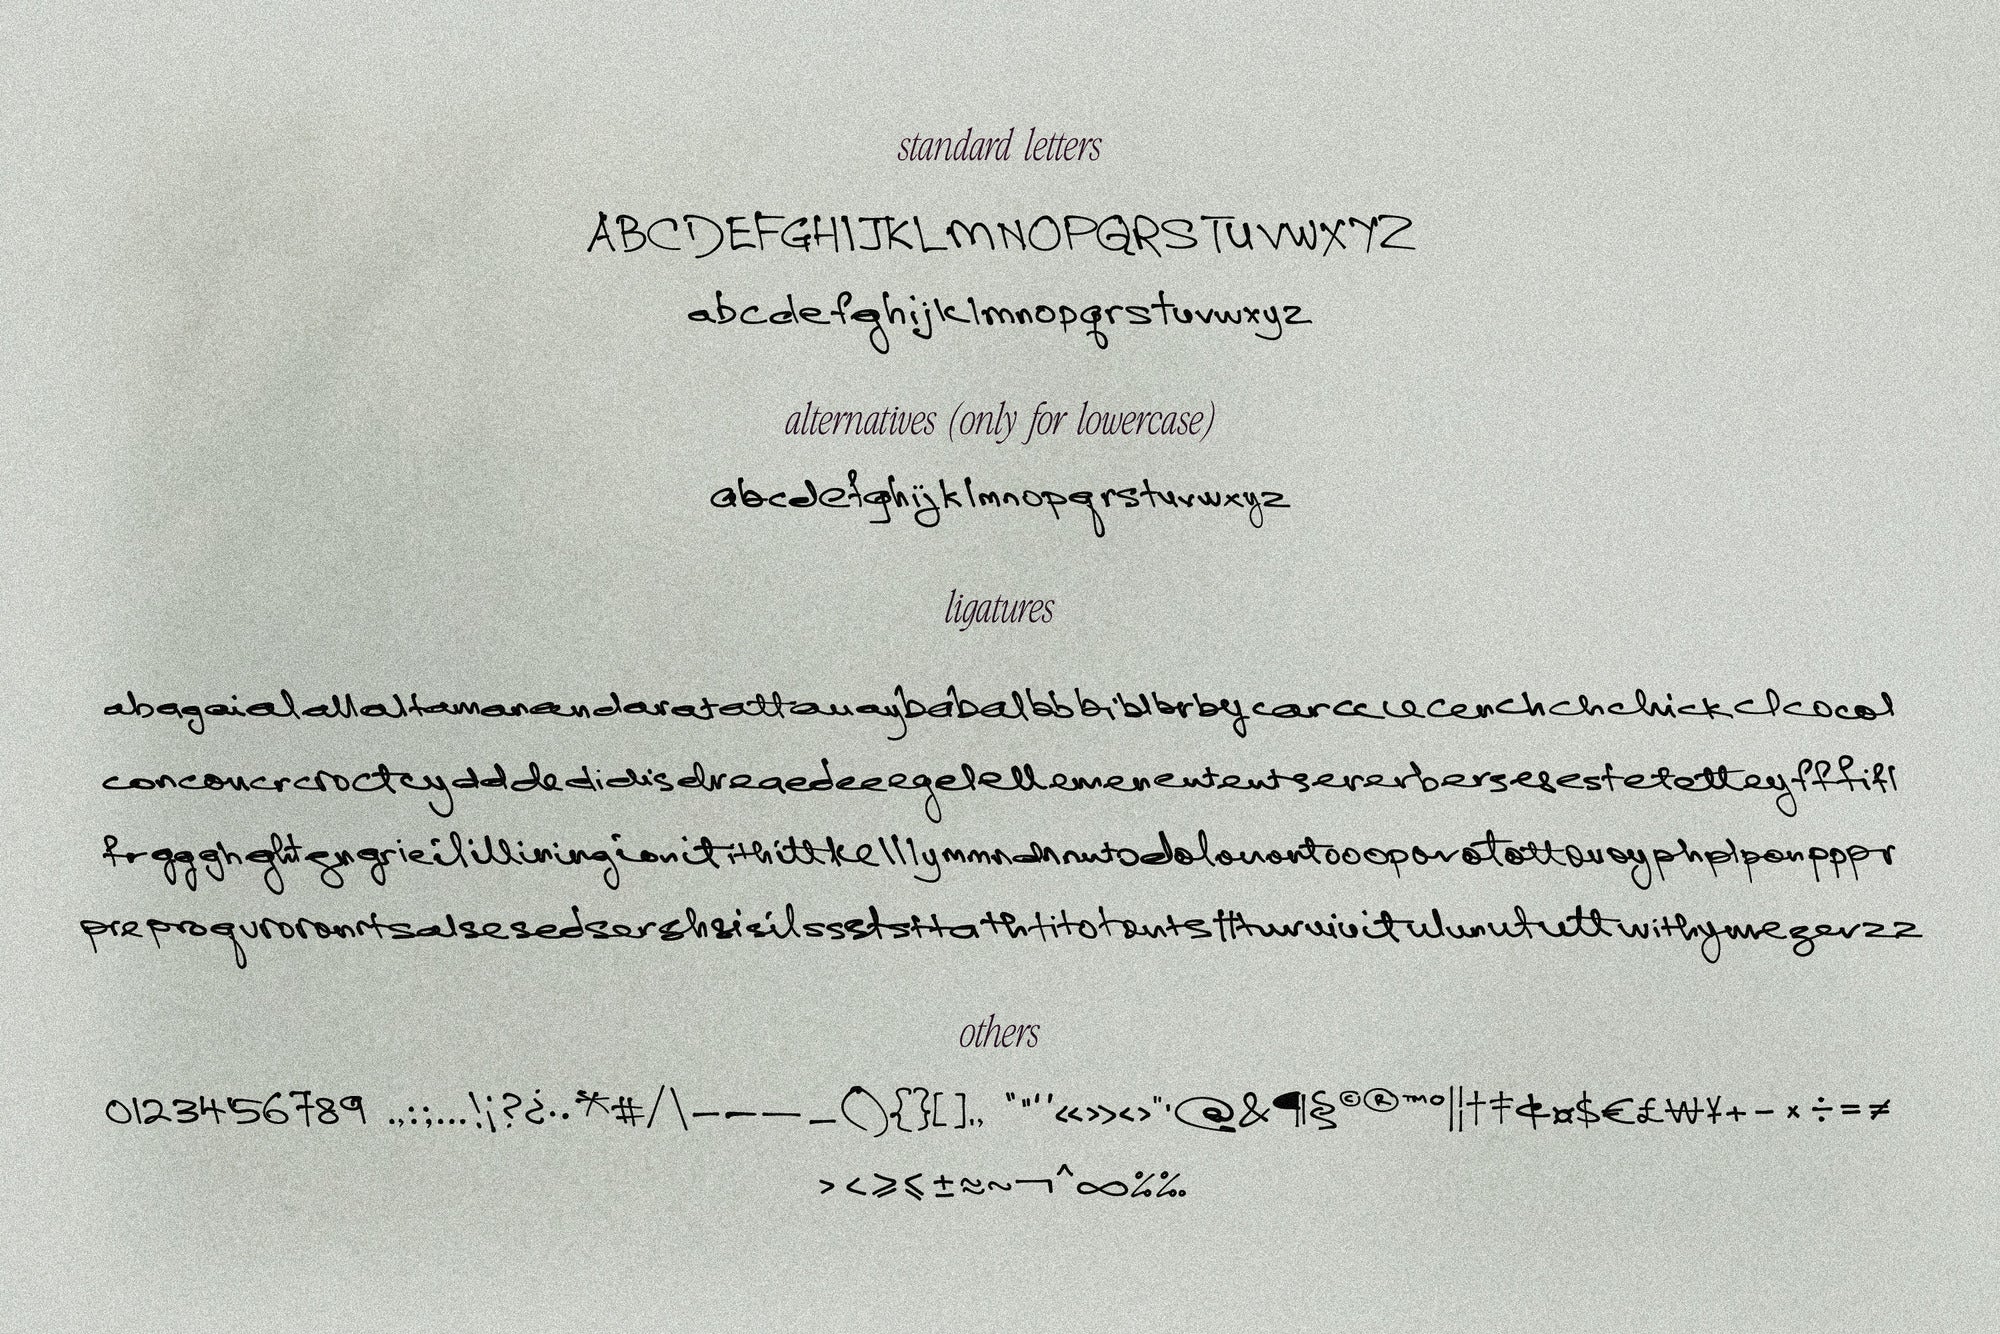 standard letters
ABCDEFGHIJKLMNOPQRSTUVWXYZ
abcdefghijklmnopqrstuvwxyz
alternatives (only for lowercase)
abcdefghijklmnopqrstuvwxyz
ligatures
abagaialallaltamananandaratattauaybabalbbbiblbrbycarcccecenchchchickclcocol
concoucrcroctcydddedidisdreaedeeegelellemenententsererbersesestetetteyffffifl
frggghghtgngrieililliningionititthittkelllymmndnnntodolouontooopovotottouoyphplponpppr
preproqurororontsalsesedsershsisilssststtathtitotoutstttururivitulunututtwithymezerzz
others
0123456789 .,:;...!¡?¿··*#/\-–—_(){}[]‚„ “”‘’«»‹›"'@&¶§©®™°|¦†‡¢¤$€£₩¥+−×÷=≠
><≥≤±≈~¬^∞%‰